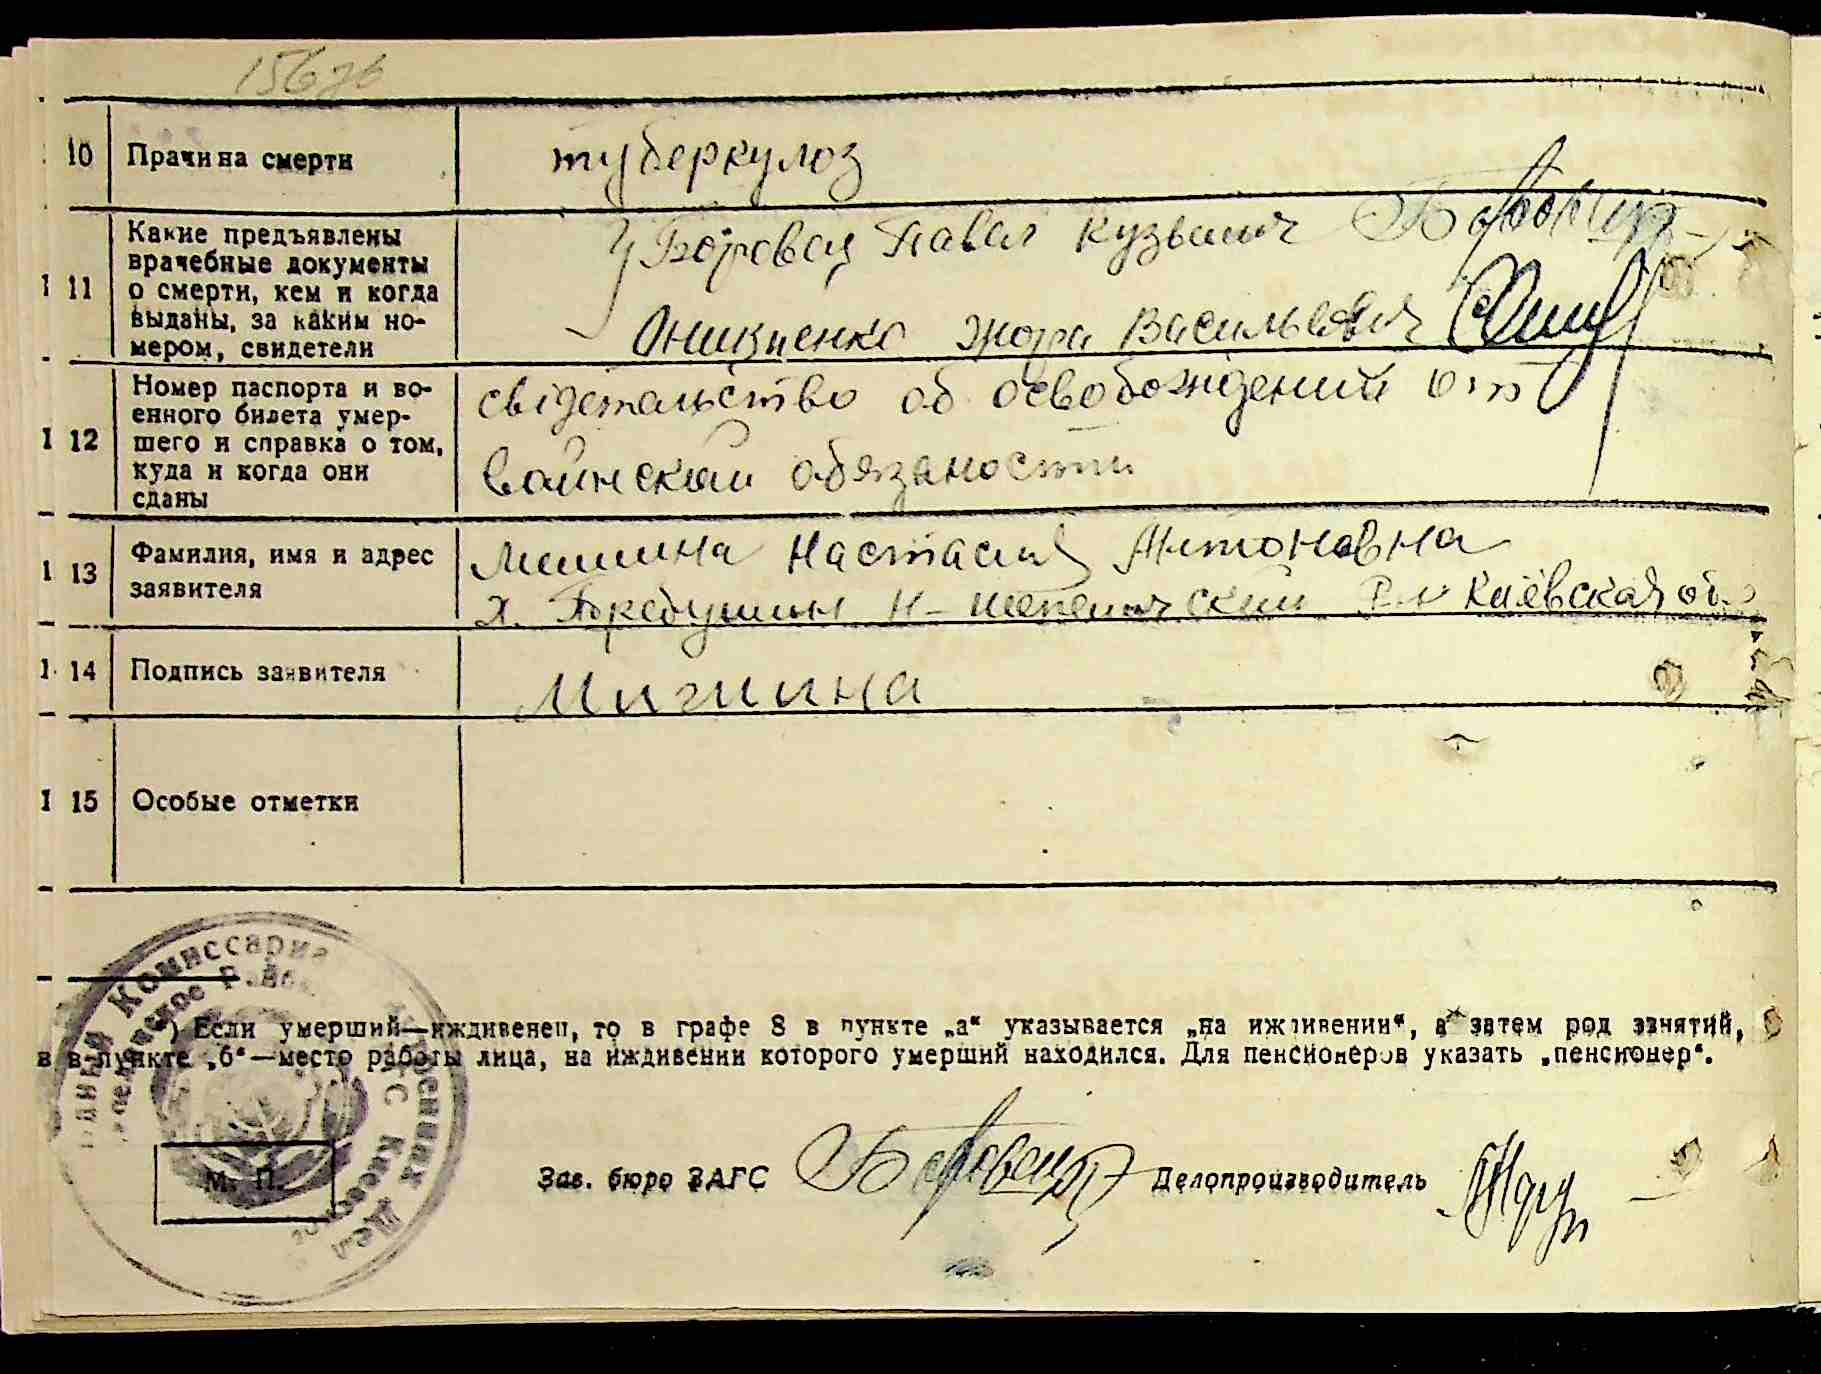 10 Прачина смерти
туберкулоз
11 Какие предъявлены
врачебные документы
о смерти, кем и когда
выданы, за каким но-
мером, свидетели
Боровец Павел Кузьмич
Онищенко Жора Васильевич
12 Номер паспорта и во-
енного билета умер-
шего и справка о том,
куда и когда они
сданы
свідетельство об освобождений от
воинскаи обязаности
13 Фамилия, имя и адрес
заявителя
Мишина Настасия Антоновна
х. Киевская об.
14 Подпись заявителя
Мишина
15 Особые отметки
*) Если умерший—иждивенец, то в графе 8 в пункте „а“ указывается „на иждивении“, а затем род занятий,
в пункте „б“—место работы лица, на иждивении которого умерший находился. Для пенсионеров указать „пенсионер“.
М. П.
Зав. бюро ЗАГС Боровец Делопроизводитель